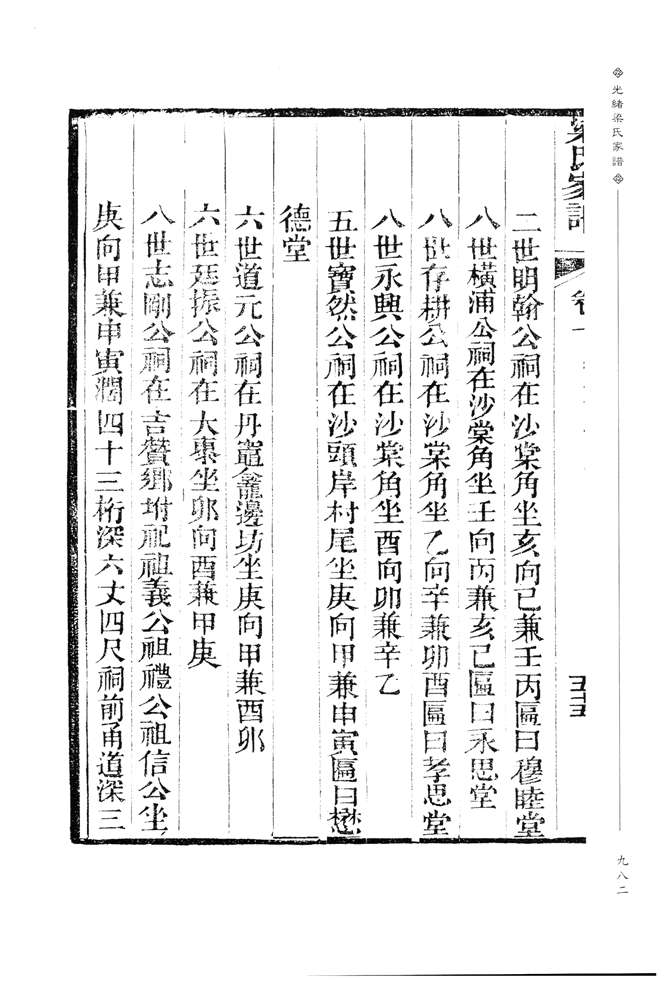 光緒梁氏家譜
梁氏家譜
卷一
二世明翰公祠在沙棠角坐亥向巳兼壬丙匾曰穆睦堂
八世橫浦公祠在沙棠角坐壬向丙兼亥巳匾曰永思堂
八世存耕公祠在沙棠角坐乙向辛兼卯酉匾曰孝思堂
八世永興公祠在沙棠角坐酉向卯兼辛乙
五世寶然公祠在沙頭岸村尾坐庚向甲兼申寅匾曰懋
德堂
六世道元公祠在丹竈龕邊坊坐庚向甲兼酉卯
六世廷振公祠在大槷坐卯向酉兼甲庚
八世志剛公祠在吉贊鄉坿祀祖義公祖禮公祖信公坐
庚向甲兼申寅濶四十三桁深六丈四尺祠前甬道深三
九八二